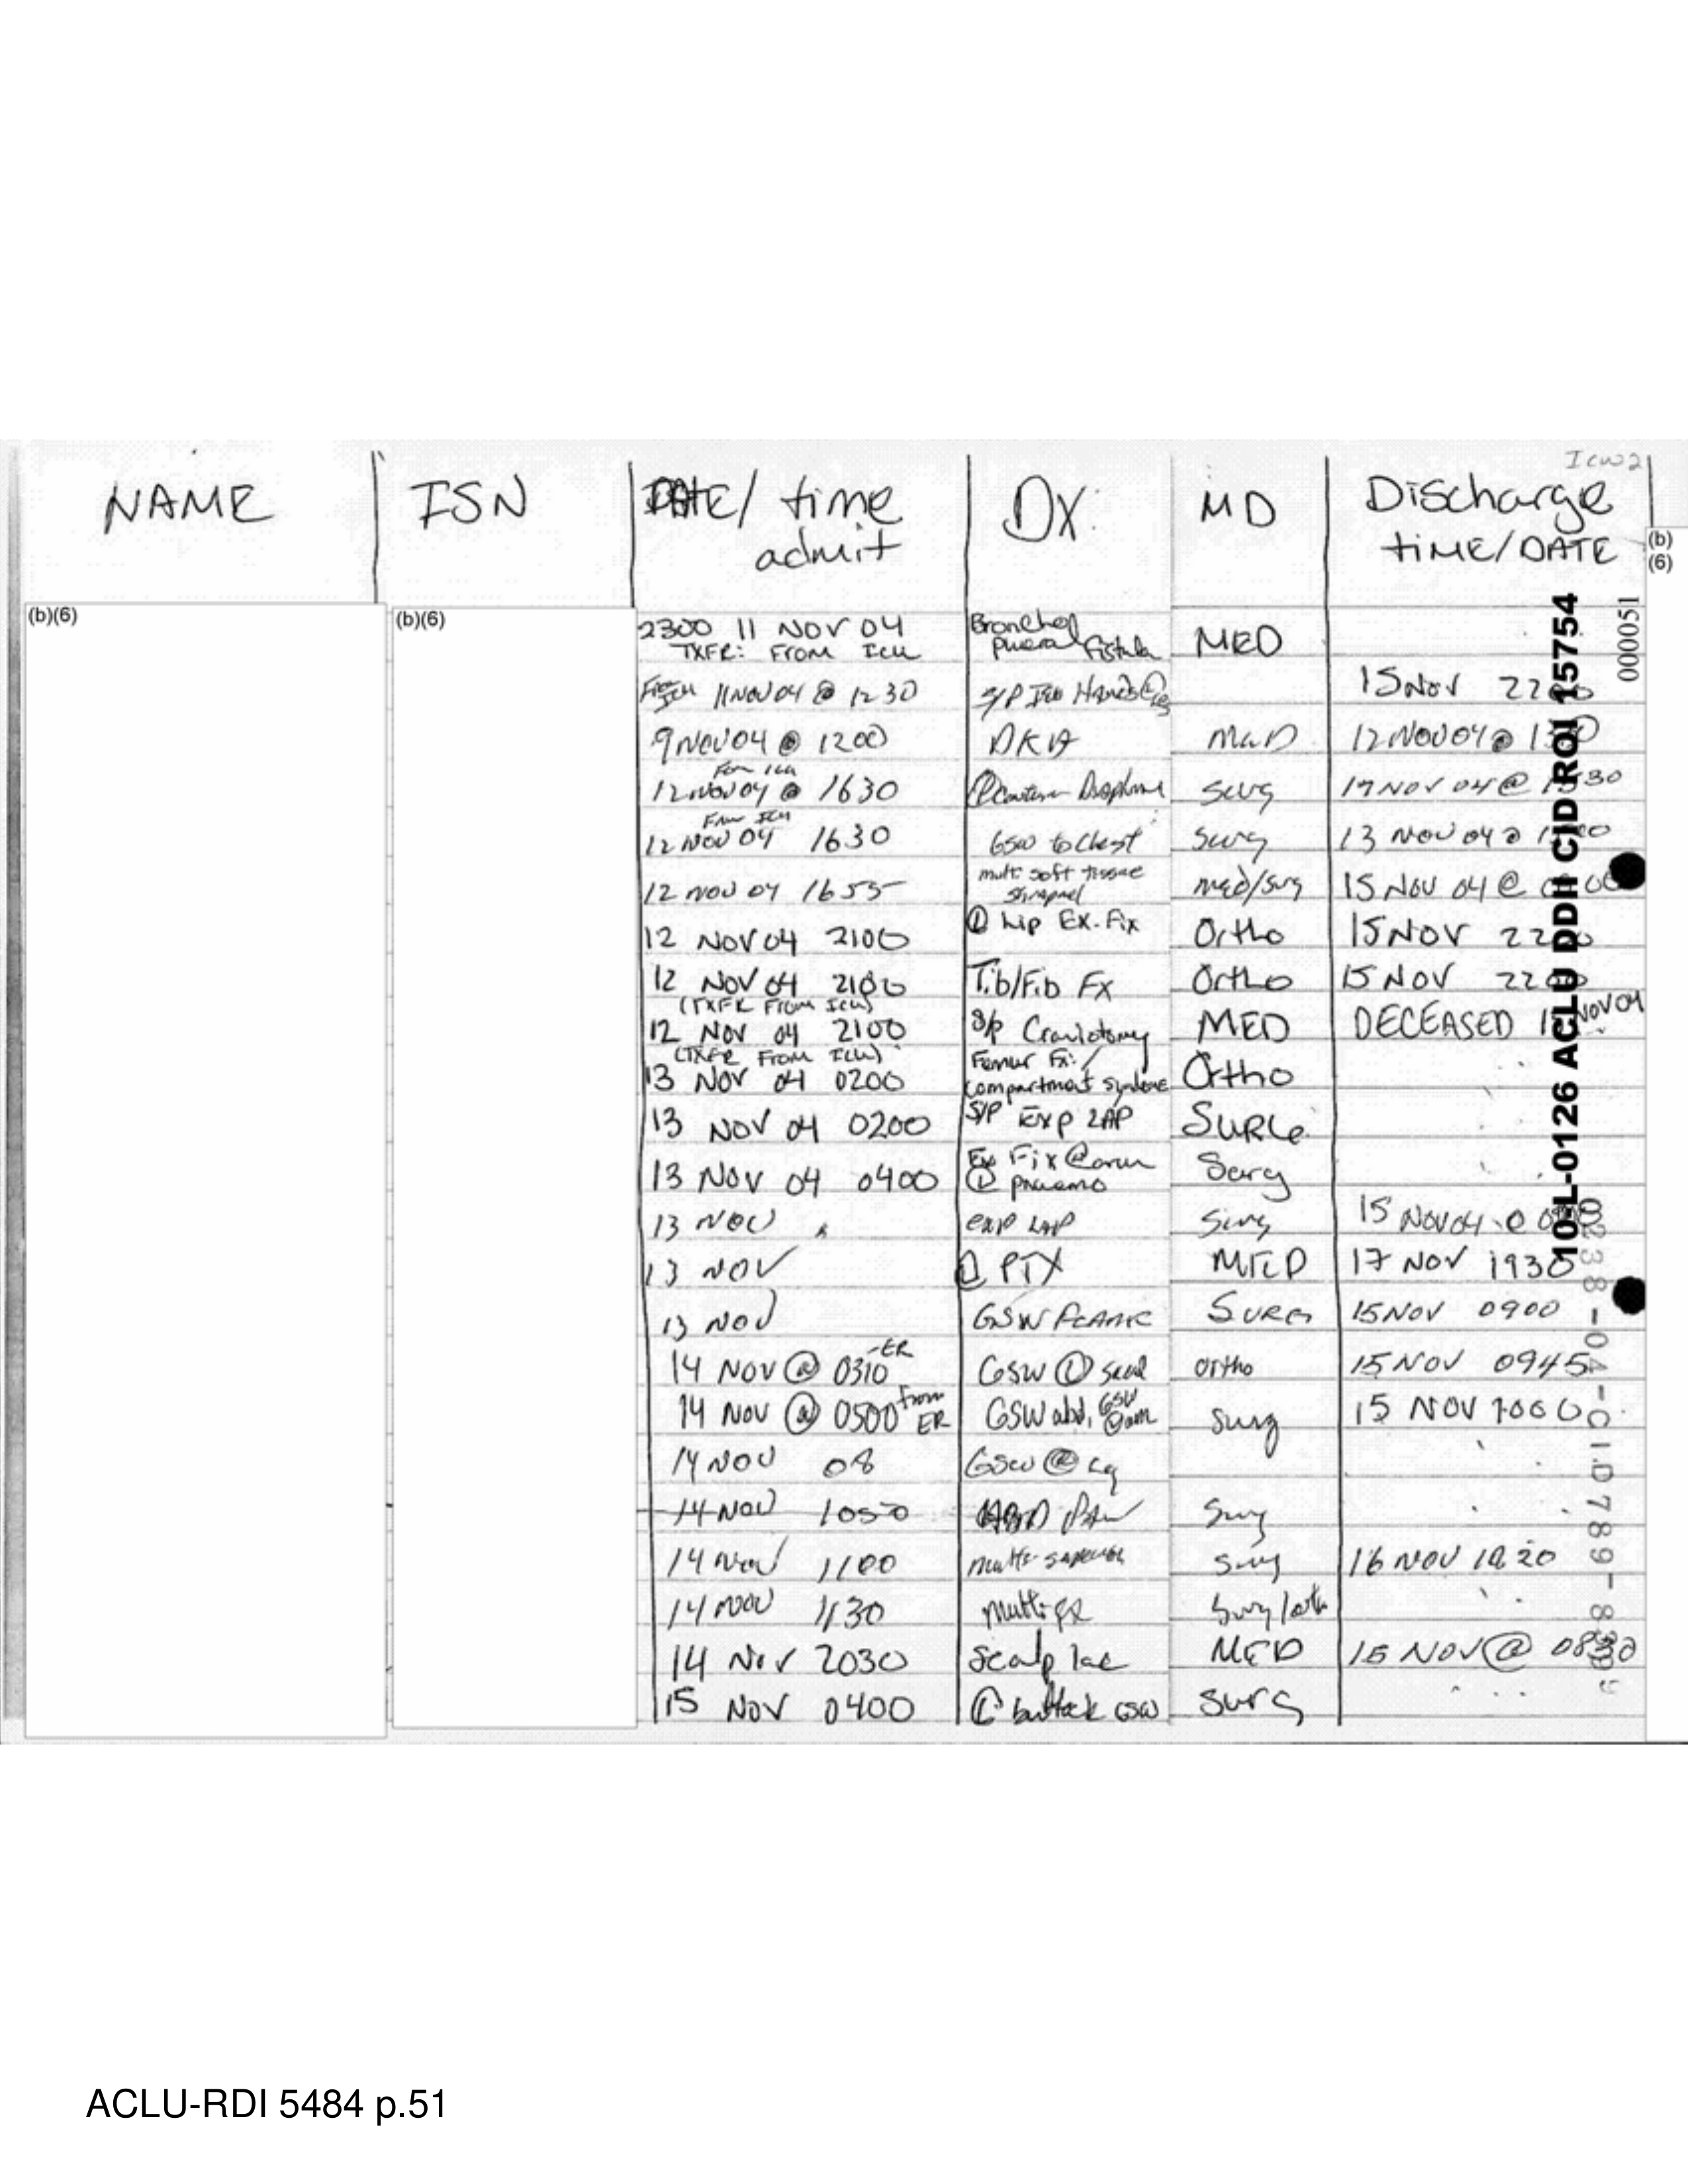 Icw2
NAME ISN DATE/ time admit DX: MD Discharge TIME/DATE
(b)(6)
(b)(6)
(b)(6)
2300 11 NOV 04 TXFR: FROM ICU Fistula MED
From ICU 11 NOV 04 @ 1230 S/P 15 NOV
9 NOV 04 @ 1200 DKA MED 12 NOV 04 @
From ICU
12 NOV 04 @ 1630 surg 04 @
From ICU
12 NOV 04 1630 GSW to Chest surg 13 NOV 04 @
12 NOV 04 1655 multi soft tissue shrapnel med/surg 15 NOV 04 @
12 NOV 04 2100 Ⓛ hip Ex-Fix Ortho 15 NOV
12 NOV 04 2100 Tib/Fib Fx Ortho 15 NOV
(TXFR FROM ICU)
12 NOV 04 2100 S/p Craniotomy MED DECEASED NOV 04
(TXFR FROM ICU)
13 NOV 04 0200 Femur Fx: / compartment syndrome Ortho
13 NOV 04 0200 S/P Exp LAP
13 NOV 04 0400 Ex Fix arm Ⓛ Surg
13 NOV exp LAP Surg 15 NOV 04 @
13 NOV PTX MED 17 NOV 1930
13 NOV GSW SURG 15 NOV 0900
14 NOV @ 0310 -ER GSW Ⓛ ortho 15 NOV 0945
14 NOV @ 0500 from ER GSW abd, GSW arm surg 15 NOV 1000
14 NOV 08 GSW Ⓡ
14 NOV 1050 Surg
14 NOV 1100 multi Surg 16 NOV
14 NOV 1130 multi fx Surg/orth
14 Nov 2030 Scalp lac MED 15 NOV @
15 NOV 0400 buttock GSW surg
10-L-0126 ACLU DDII CID ROI 15754
000051
0238-04-CID789-83
ACLU-RDI 5484 p.51